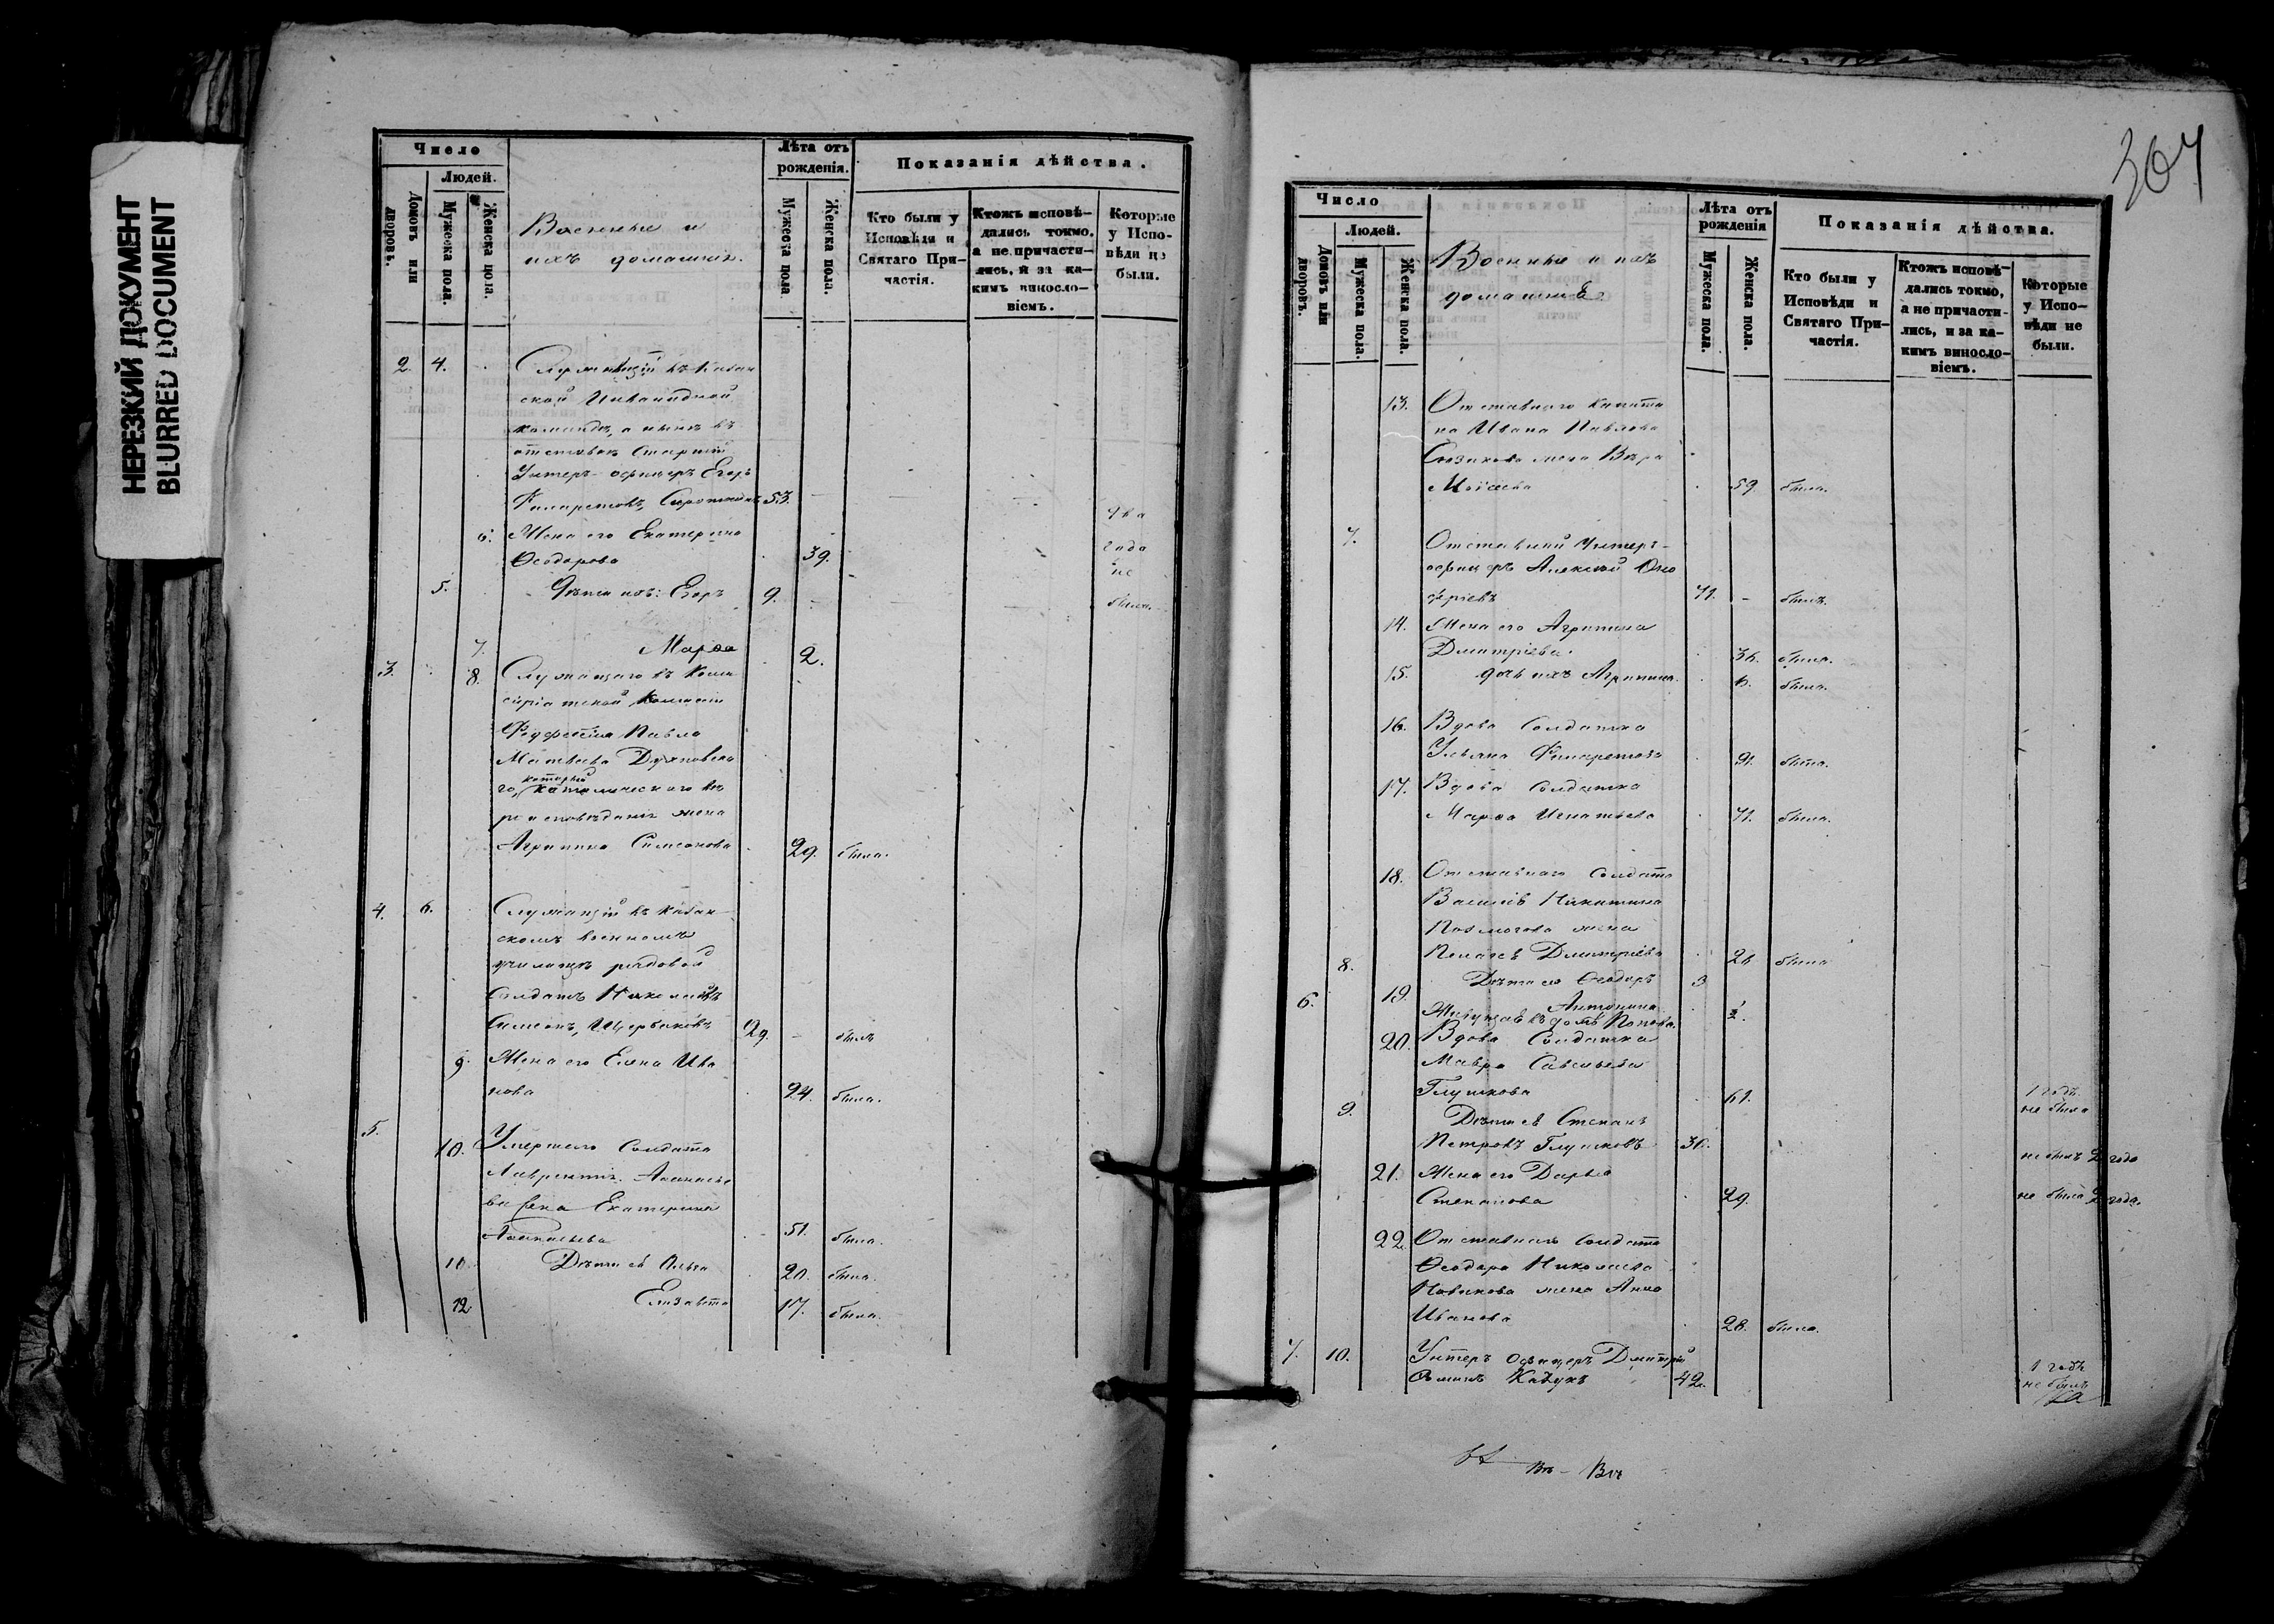 НЕРЕЗКИЙ ДОКУМЕНТ
BLURRED DOCUMENT
Число
Людей.
Домовъ или дворовъ.
Мужеска пола.
Женска пола.
Военные и
ихъ домашніе.
Лѣта отъ рожденія.
Мужеска пола
Женска пола.
Показанія дѣйства.
Кто были у Исповѣди и Святаго Причастія.
Ктожъ исповѣдались токмо, а не причастились, и за какимъ винословіемъ.
Которые у Исповѣди не были.
2. 4. Служащій въ Казан
ской Инвалидной
командѣ, а нынѣ въ
отставкѣ Старшій
Унтеръ-офицеръ Егоръ
Филаретовъ 53.
6. Жена его Екатерина
Ѳеодорова 39.
два
года
не
были.
5. Дѣти ихъ: Егоръ 9.
7. Марѳа 2.
3. 8. Служащаго въ Комми
сіріатской Коммисіи
Павла
Матвеева
го, который католическаго вѣ
роисповѣданія жена
Агрипина Симеонова 29. была.
4. 6. Служащій въ Казан-
скомъ военномъ
училищѣ рядовой
Солдатъ
Симеонъ Щербаковъ 29. - былъ
9. Жена его Елена Ива
нова 24. была.
5. 10. Умершаго Солдата
Лаврентія Аѳанасье
ва жена Екатерина
Аѳанасьева 51. была.
11. Дѣти ея Ольга 20. была.
12 Елизавета 17. была.
304
Число
Людей.
Домовъ или дворовъ.
Мужеска пола.
Женска пола.
Военные и ихъ
домашніе
Лѣта отъ рожденія
Мужеска пола.
Женска пола.
Показанія дѣйства.
Кто были у Исповѣди и Святаго Причастія.
Ктожъ исповѣдались токмо, а не причастились, и за какимъ винословіемъ.
Которые у Исповѣди не были.
13. Отставнаго Капита
на Ивана Павлова
жена Вѣра
Моисеева 59. была.
7. Отставный Унтеръ-
офицеръ Алексѣй Ону
фріевъ 71. - былъ.
14. Жена его Агрипина
Дмитріева. 36. была.
15. дочь ихъ Агрипина. 6. была.
16. Вдова Солдатка
Ульяна Филаретова 91. была.
17. Вдова Солдатка
Марѳа Игнатьева 71. была.
18. Отставнаго Солдата
Василія Никитина
жена
Пелагея Дмитріева 26 была
8. Дѣти ея Ѳеодоръ 3
19. Антонина ½.
6. Живущая въ домѣ Попова.
20. Вдова Солдатка
Мавра Савельева
Глушкова 61. 1 годъ
не была
9. Дѣти ея Степанъ
Петровъ Глушковъ 36. не былъ 2 года
21. Жена его Дарья
Степанова 29. не была 2 года.
22. Отставнаго Солдата
Ѳеодора Николаева
Новикова жена Анна
Иванова 28. была.
7. 10. Унтеръ офицеръ Дмитрій
Ѳоминъ 42. 1 годъ
не былъ